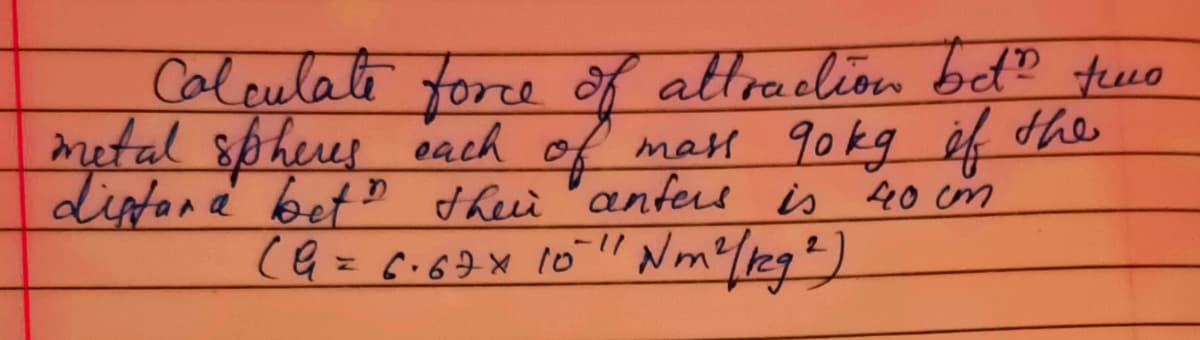 Calculate force of attraction betⁿ two
metal spheres each of mass 90kg if the
distance betⁿ their centers is 40 cm
(G = 6.67 × 10⁻¹¹ Nm²/kg²)